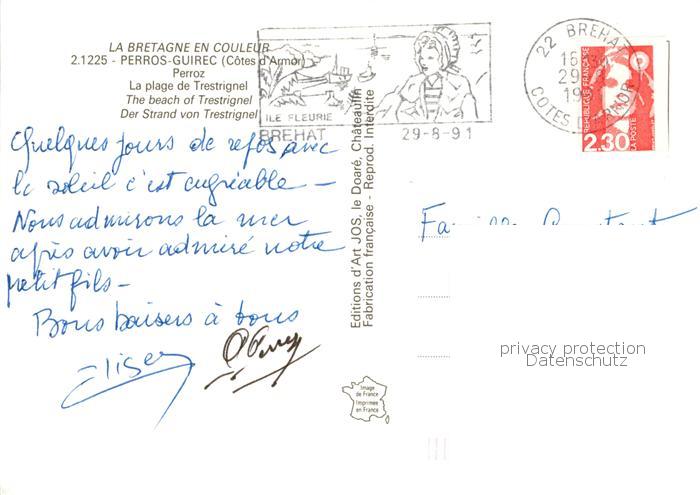 LA BRETAGNE EN COULEUR
2.1225 - PERROS-GUIREC (Côtes d'Armor)
Perroz
La plage de Trestrignel
The beach of Trestrignel
Der Strand von Trestrignel
ILE FLEURIE
BREHAT
29-8-91
22 BREHAT
COTES D'ARMOR
REPUBLIQUE FRANÇAISE
2,30
LA POSTE
Quelques jours de repos avec
le soleil c'est agréable -
Nous admirons la mer
après avoir admiré notre
petit fils -
Bons baisers à tous
Editions d'Art JOS, le Doaré, Châteaulin
Fabrication française - Reprod. Interdite
Image
de France
Imprimée
en France
privacy protection
Datenschutz